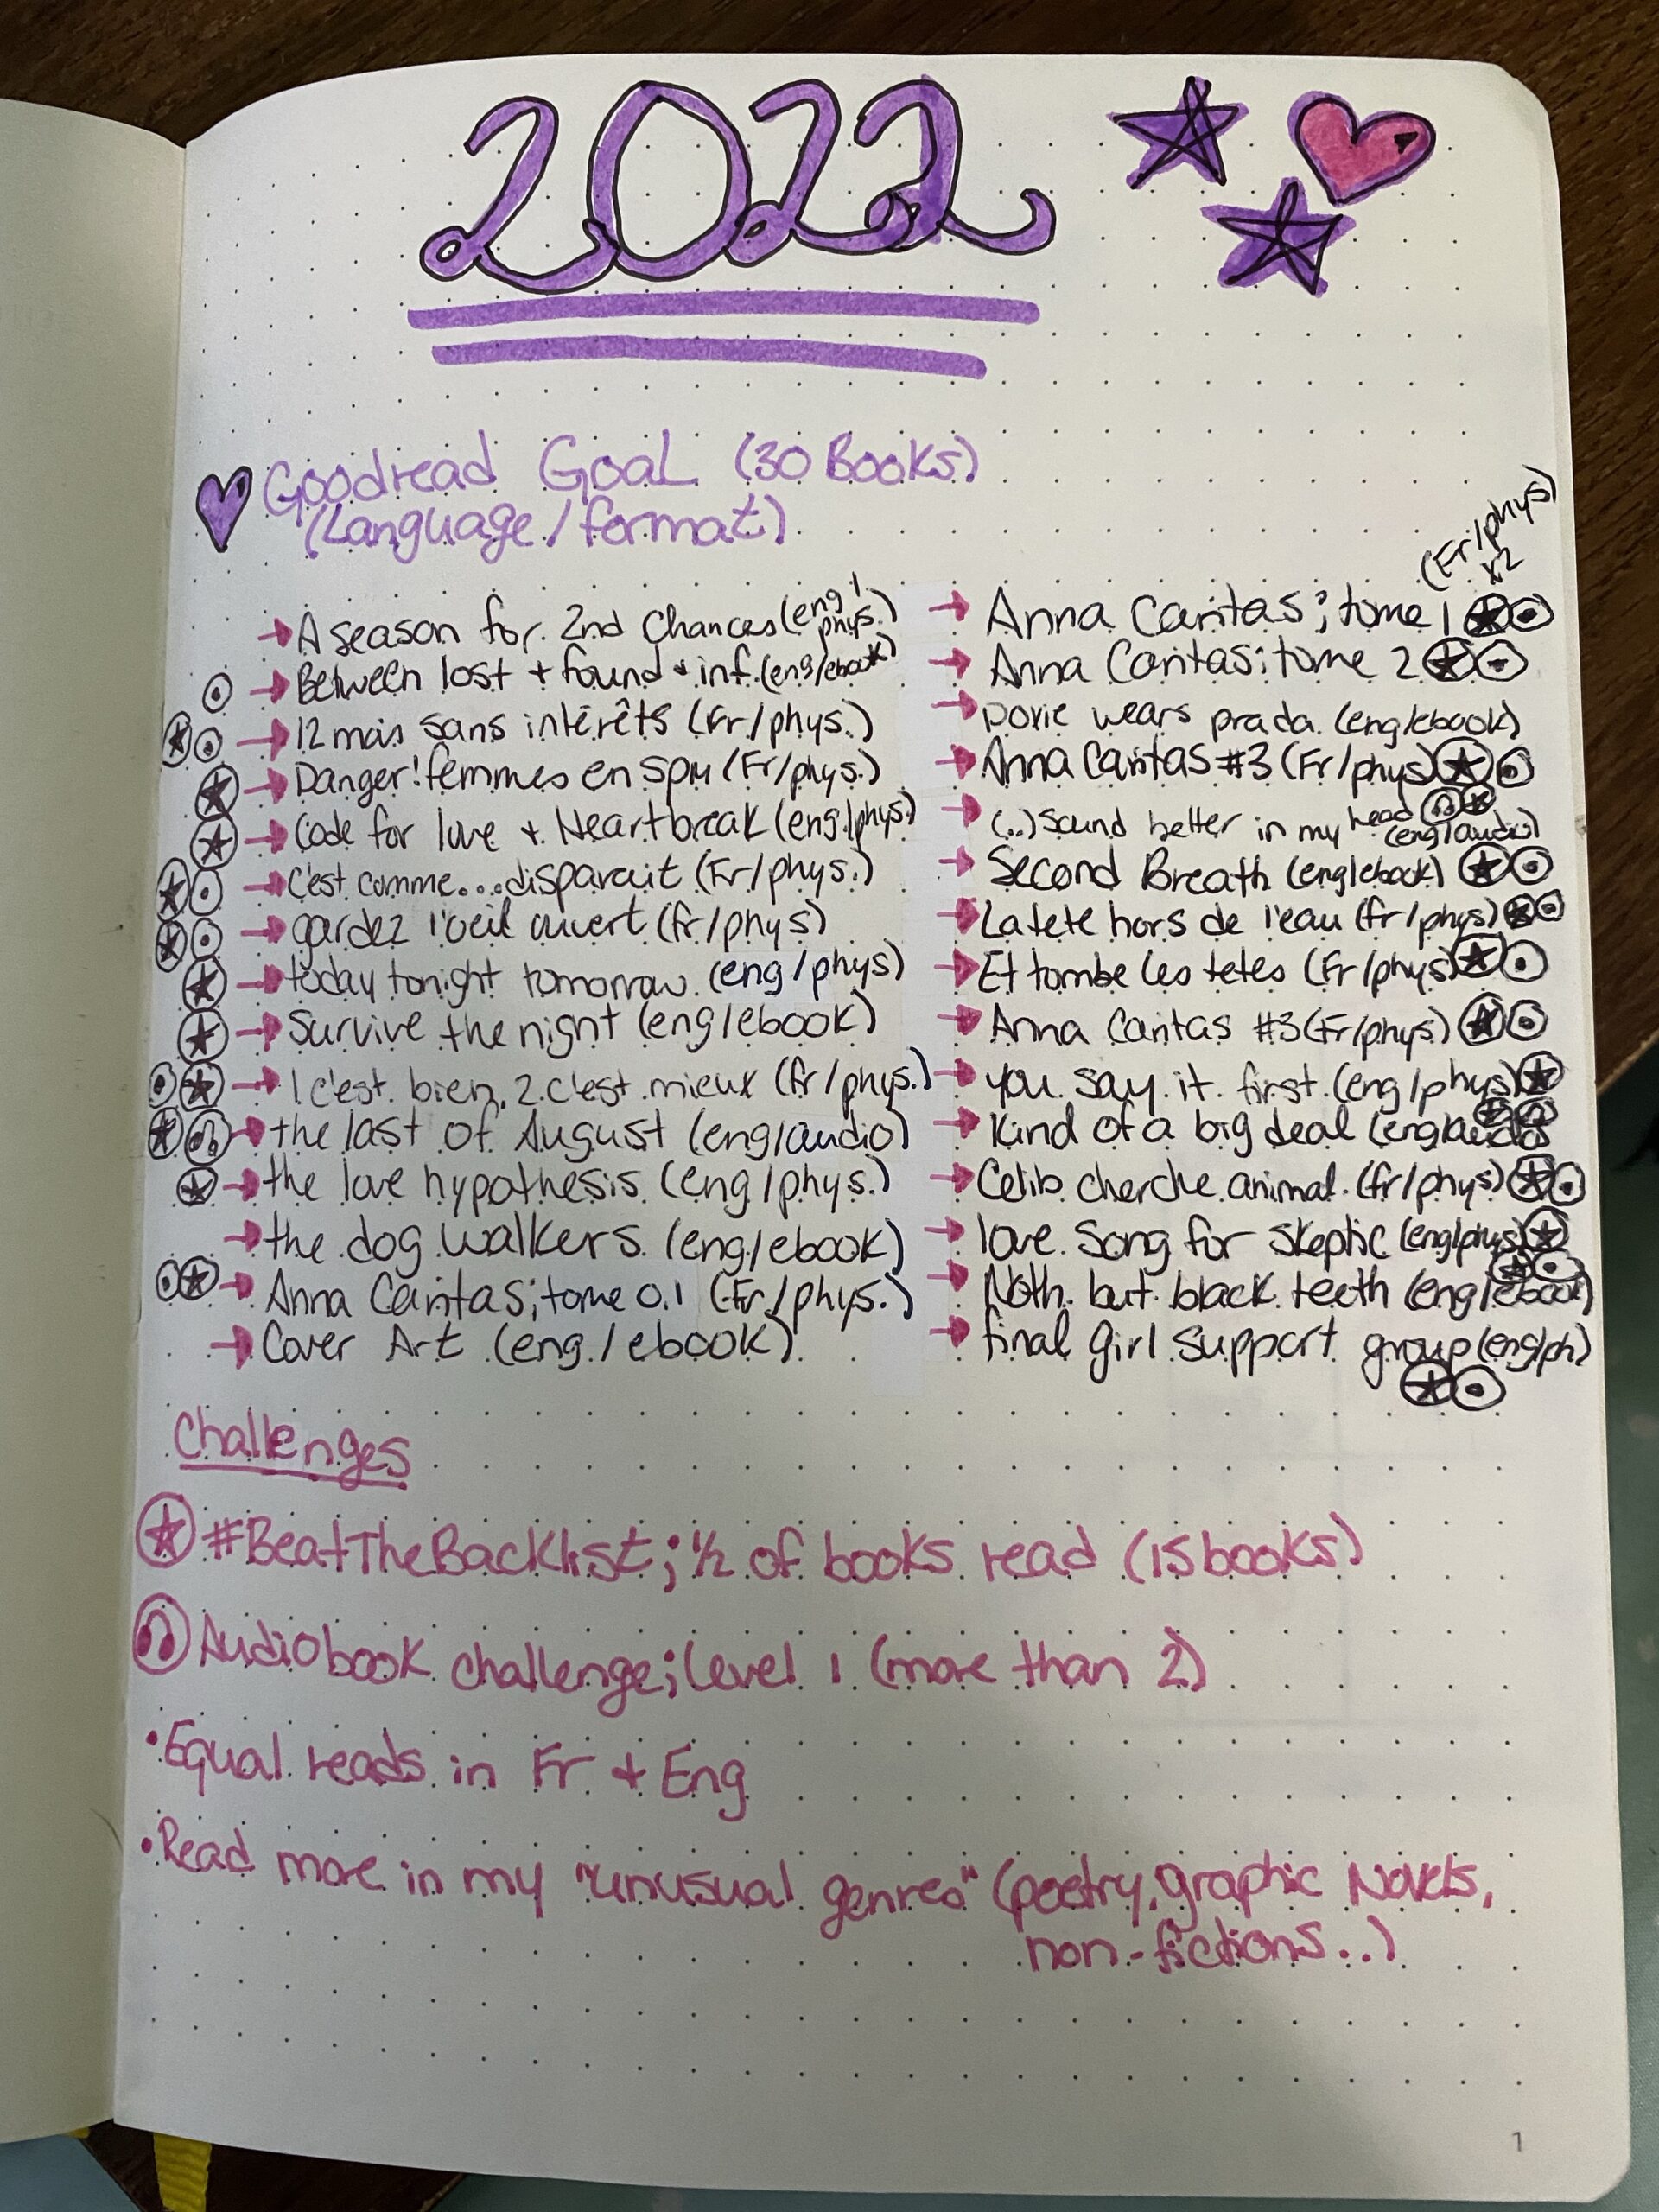 2022
Goodread Goal (30 Books)
(Language/format)
→ A season for 2nd Chances (eng/
phys.)
→ Between lost + found + inf. (eng/ebook)
→ 12 mois sans intérêts (Fr/phys.)
→ Danger! femmes en SPM (Fr/phys.)
→ Code for love + Heartbreak (eng./phys.)
→ C'est comme....disparait (Fr/phys.)
→ gardez l'oeil ouvert (fr/phys)
→ today tonight tomorrow (eng/phys)
→ Survive the night (eng/ebook)
→ 1 c'est bien, 2 c'est mieux (fr/phys.)
→ the last of August (eng/audio)
→ the love hypothesis (eng/phys.)
→ the dog walkers (eng/ebook)
→ Anna Caritas; tome 0.1 (Fr/phys.)
→ Cover Art (eng./ebook)
(Fr/phys)
x2
→ Anna Caritas; tome 1
→ Anna Caritas; tome 2
→ Dorie wears prada (eng/ebook)
→ Anna Caritas #3 (Fr/phys)
→ (..) Sound better in my head
(eng/audio)
→ Second Breath (eng/ebook)
→ La tete hors de l'eau (fr/phys)
→ Et tombe les tetes (Fr/phys)
→ Anna Caritas #3 (Fr/phys)
→ you say it first (eng/phys)
→ Kind of a big deal (eng/audio)
→ Celib cherche animal (fr/phys)
→ love song for skeptic (eng/phys)
→ Noth. but black teeth (eng/ebook)
→ final girl support group (eng/ph)
Challenges
#BeatTheBacklist; 1/2 of books read (15 books)
Audiobook challenge; level 1 (more than 2)
• Equal reads in Fr + Eng
• Read more in my "unusual genres" (poetry, graphic Novels,
non-fictions..)
1